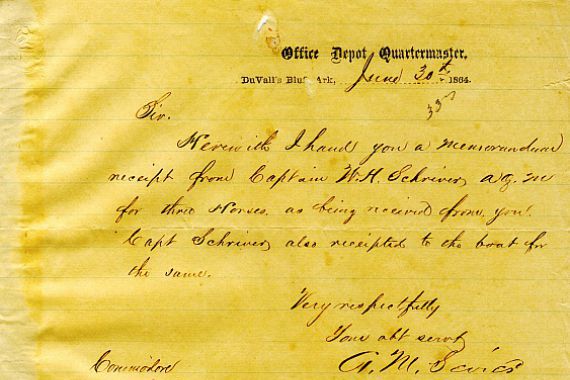 Office Depot Quartermaster,
DuVall's Bluff Ark, June 30th 1864.
Sir.
Herewith I hand you a memorandum
receipt from Captain W.H. Schriver, a q. m
for three Horses, as being received from you.
Capt Schriver, also receipted to the boat for
the same.
Very respectfully
Your obt servt
A. M.
Commodore